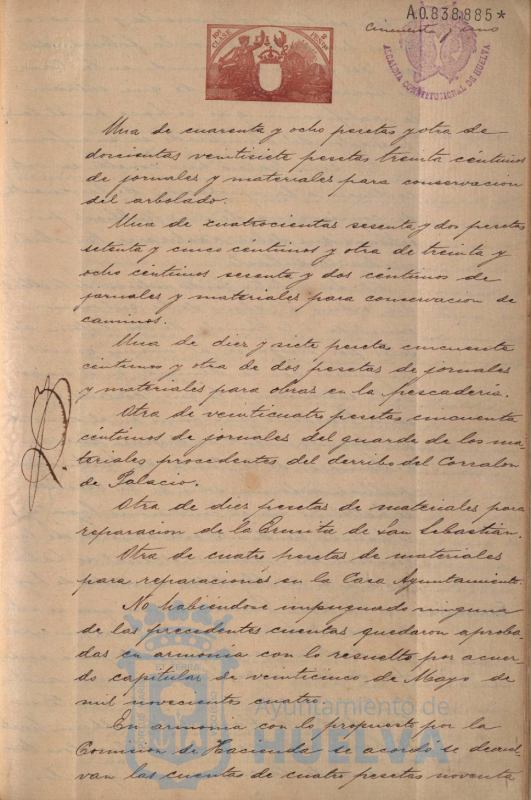 A.0.838,885*
Cincuenta y uno
10ª CLASE
2 PESETAS
ALCALDIA CONSTITUCIONAL DE HUELVA
Una de cuarenta y ocho pesetas y otra de
doscientas veintisiete pesetas treinta céntimos
de jornales y materiales para conservacion
del arbolado.
Una de cuatrocientas sesenta y dos pesetas
setenta y cinco céntimos y otra de treinta y
ocho céntimos sesenta y dos céntimos de
jornales y materiales para conservacion de
caminos.
Una de diez y siete peseta cincuenta
céntimos y otra de dos pesetas de jornales
y materiales para obras en la pescadería.
Otra de veinticuatro pesetas cincuenta
céntimos de jornales del guarda de los ma-
teriales procedentes del derribo del Corralon
de Palacio.
Otra de diez pesetas de materiales para
reparacion de la Ermita de San Sebastian.
Otra de cuatro pesetas de materiales
para reparaciones en la Casa Ayuntamiento.
No habiendose impugnado ninguna
de las precedentes cuentas quedaron aproba-
das en armonia con lo resuelto por acuer-
do capitular de veinticinco de Mayo de
mil novecientos cuatro.
En armonia con lo propuesto por la
Comision de Hacienda se acordó se devuel
van las cuentas de cuatro pesetas noventa
Ayuntamiento de
HUELVA